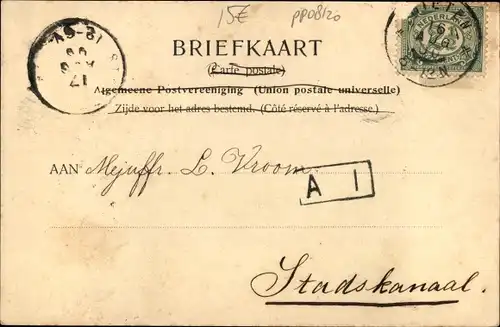 15€
PP08120
BRIEFKAART
(Carte postale)
Algemeene Postvereeniging (Union postale universelle)
Zijde voor het adres bestemd. (Côté réservé à l'adresse.)
NEDERLAND
AAN Mejuffr. L. Vroom.
A I
Stadskanaal.